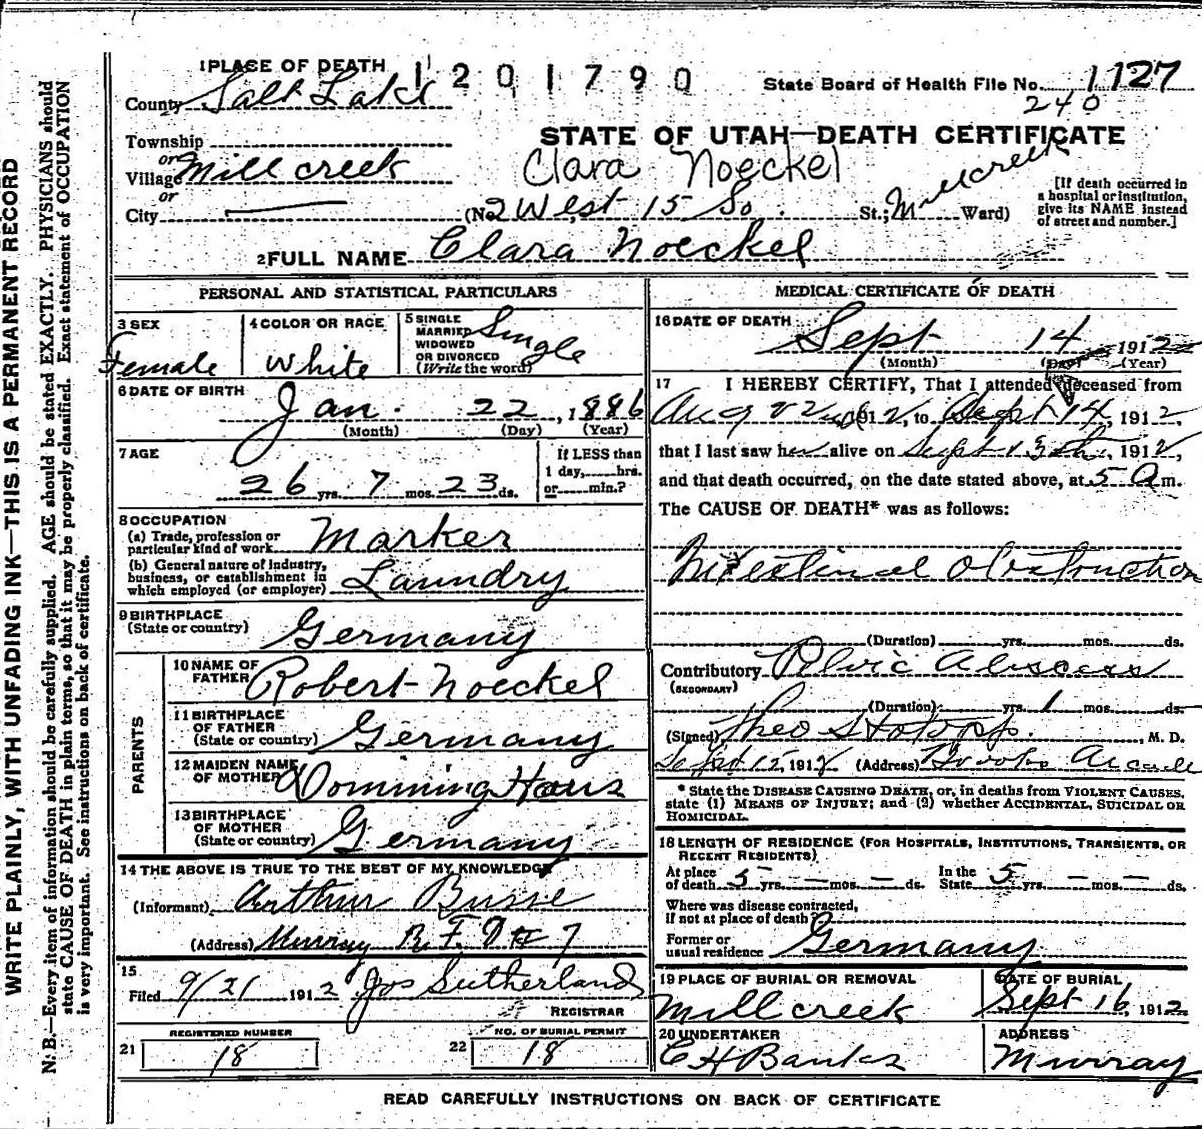 WRITE PLAINLY, WITH UNFADING INK—THIS IS A PERMANENT RECORD
N. B.—Every item of information should be carefully supplied. AGE should be stated EXACTLY. PHYSICIANS should
state CAUSE OF DEATH in plain terms, so that it may be properly classified. Exact statement of OCCUPATION
is very important. See instructions on back of certificate.
1 PLACE OF DEATH 1201790
State Board of Health File No. 1127
County Salt Lake
240
Township
or
Village Mill creek
or
City
STATE OF UTAH—DEATH CERTIFICATE
Clara Noeckel
(No. 2 West 15 So. St.; Millcreek Ward)
[If death occurred in
a hospital or institution,
give its NAME instead
of street and number.]
2 FULL NAME Clara Noeckel
PERSONAL AND STATISTICAL PARTICULARS
3 SEX
Female
4 COLOR OR RACE
White
5 SINGLE
MARRIED
WIDOWED
OR DIVORCED
(Write the word)
Single
6 DATE OF BIRTH
Jan. 22, 1886
(Month) (Day) (Year)
7 AGE
26 yrs. 7 mos. 23 ds.
If LESS than
1 day, hrs.
or min.?
8 OCCUPATION
(a) Trade, profession or
particular kind of work Marker
(b) General nature of Industry,
business, or establishment in
which employed (or employer) Laundry
9 BIRTHPLACE
(State or country) Germany
PARENTS
10 NAME OF
FATHER Robert Noeckel
11 BIRTHPLACE
OF FATHER
(State or country) Germany
12 MAIDEN NAME
OF MOTHER
13 BIRTHPLACE
OF MOTHER
(State or country) Germany
14 THE ABOVE IS TRUE TO THE BEST OF MY KNOWLEDGE
(Informant) Arthur Busse
(Address) Murray R. F. D # 7
15
Filed 9/21 1912 Jos Sutherland
REGISTRAR
REGISTERED NUMBER
21 18
NO. OF BURIAL PERMIT
22 18
MEDICAL CERTIFICATE OF DEATH
16 DATE OF DEATH
Sept 14 1912
(Month) (Day) (Year)
17 I HEREBY CERTIFY, That I attended deceased from
Aug 22nd 1912, to Sept 14, 1912,
that I last saw her alive on Sept 13th, 1912,
and that death occurred, on the date stated above, at 5 A m.
The CAUSE OF DEATH* was as follows:
Intestinal Obstruction
(Duration) yrs. mos. ds.
Contributory Pelvic Abscess
(SECONDARY)
(Duration) yrs. 1 mos. ds.
(Signed) Theo Stotopp, M. D.
Sept 15, 1912 (Address) Brooks Arcade
* State the DISEASE CAUSING DEATH, or, in deaths from VIOLENT CAUSES,
state (1) MEANS OF INJURY; and (2) whether ACCIDENTAL, SUICIDAL OR
HOMICIDAL.
18 LENGTH OF RESIDENCE (FOR HOSPITALS, INSTITUTIONS, TRANSIENTS, OR
RECENT RESIDENTS)
At place
of death 5 yrs. — mos. — ds.
In the
State 5 yrs. — mos. — ds.
Where was disease contracted,
if not at place of death?
Former or
usual residence Germany
19 PLACE OF BURIAL OR REMOVAL
Mill creek
DATE OF BURIAL
Sept 16, 1912
20 UNDERTAKER
C H Banks
ADDRESS
Murray
READ CAREFULLY INSTRUCTIONS ON BACK OF CERTIFICATE